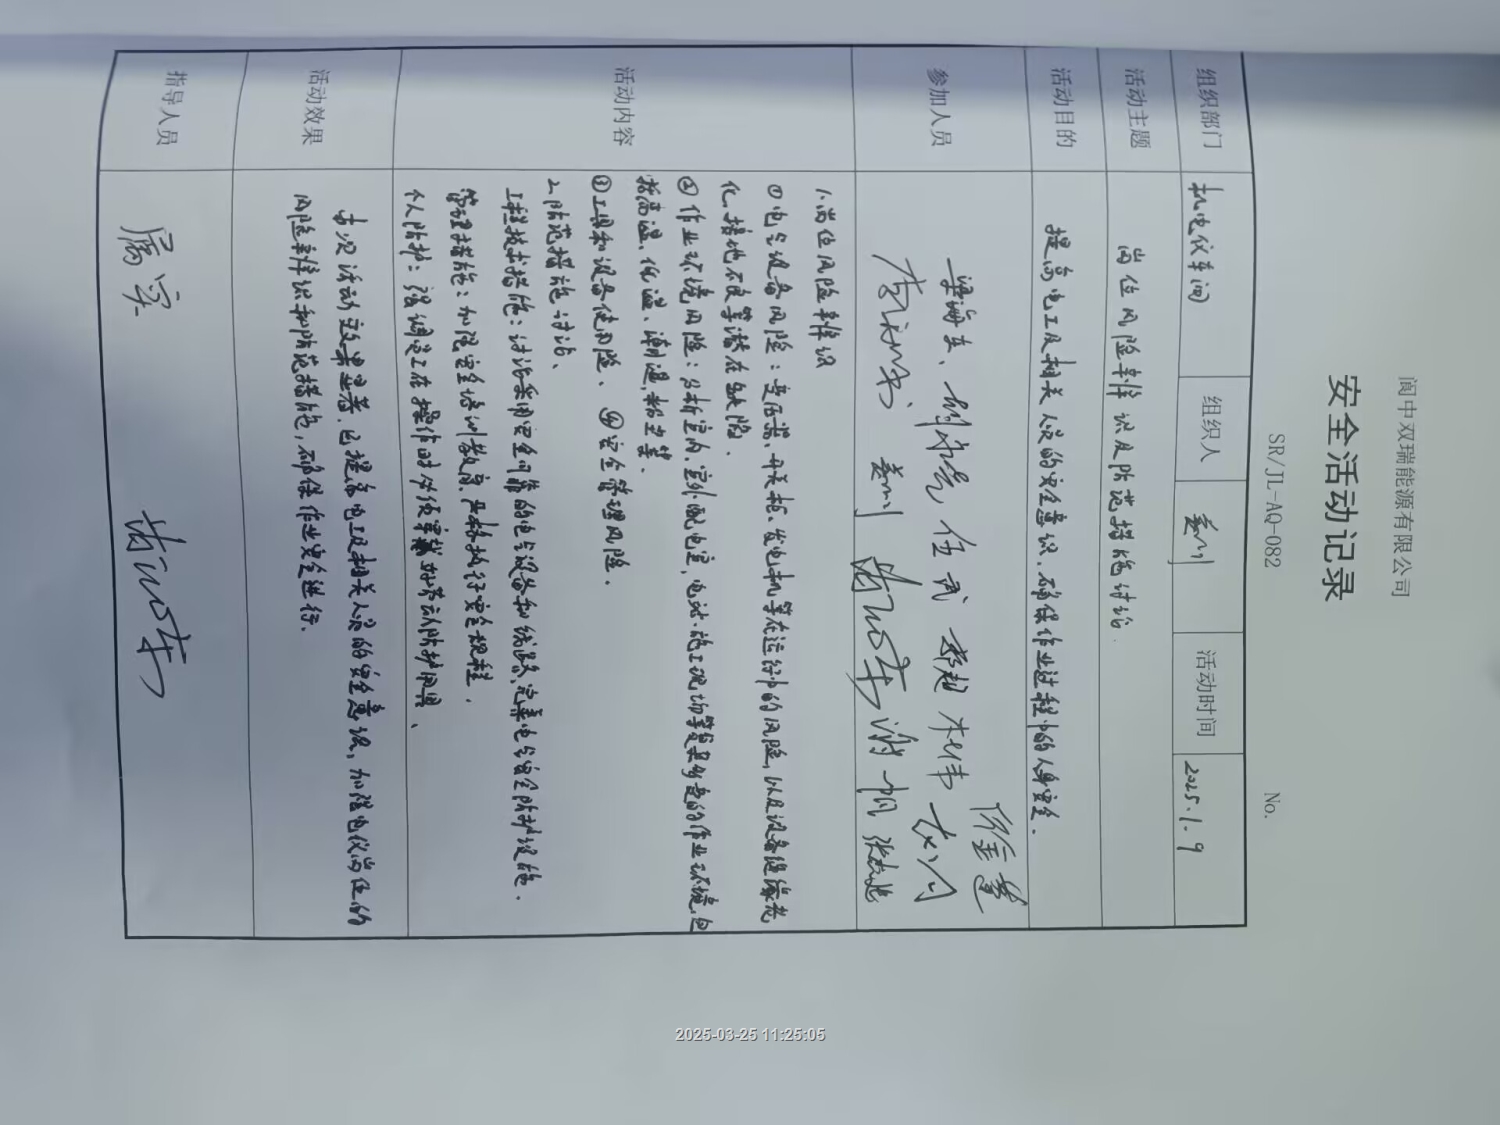 阆中双瑞能源有限公司
安全活动记录
SR/JL-AQ-082 No.
组织部门 机电仪车间 组织人 活动时间 2025.1.9
活动主题 岗位风险辨识及防范措施讨论.
活动目的 提高电工及相关人员的安全意识、确保作业过程中的人身安全.
参加人员 梁海东、 任武 郑超
1、岗位风险辨识
①电气设备风险:变压器、开关柜、发电机等在运行中的风险,以及设备绝缘老
化,接地不良等潜在缺陷.
②作业环境风险:分析室内、室外配电室,电站.施工现场等复杂多变的作业环境,包
括高温、低温、潮湿,粉尘等.
③工具和设备使用险、④安全管理风险.
2、防范措施讨论、
工程技术措施:讨论采用安全可靠的电气设备和线路,完善电气安全防护设施.
管理措施:加强安全培训教育,严格执行安全规程.
个人防护:强调员工在操作时必须穿戴好劳动防护用具、
活动内容
本次活动效果显著,已提高电工及相关人员的安全意识,加强电仪岗位的
风险辨识和防范措施,确保作业安全进行.
活动效果
指导人员 属实
2025-03-25 11:25:05